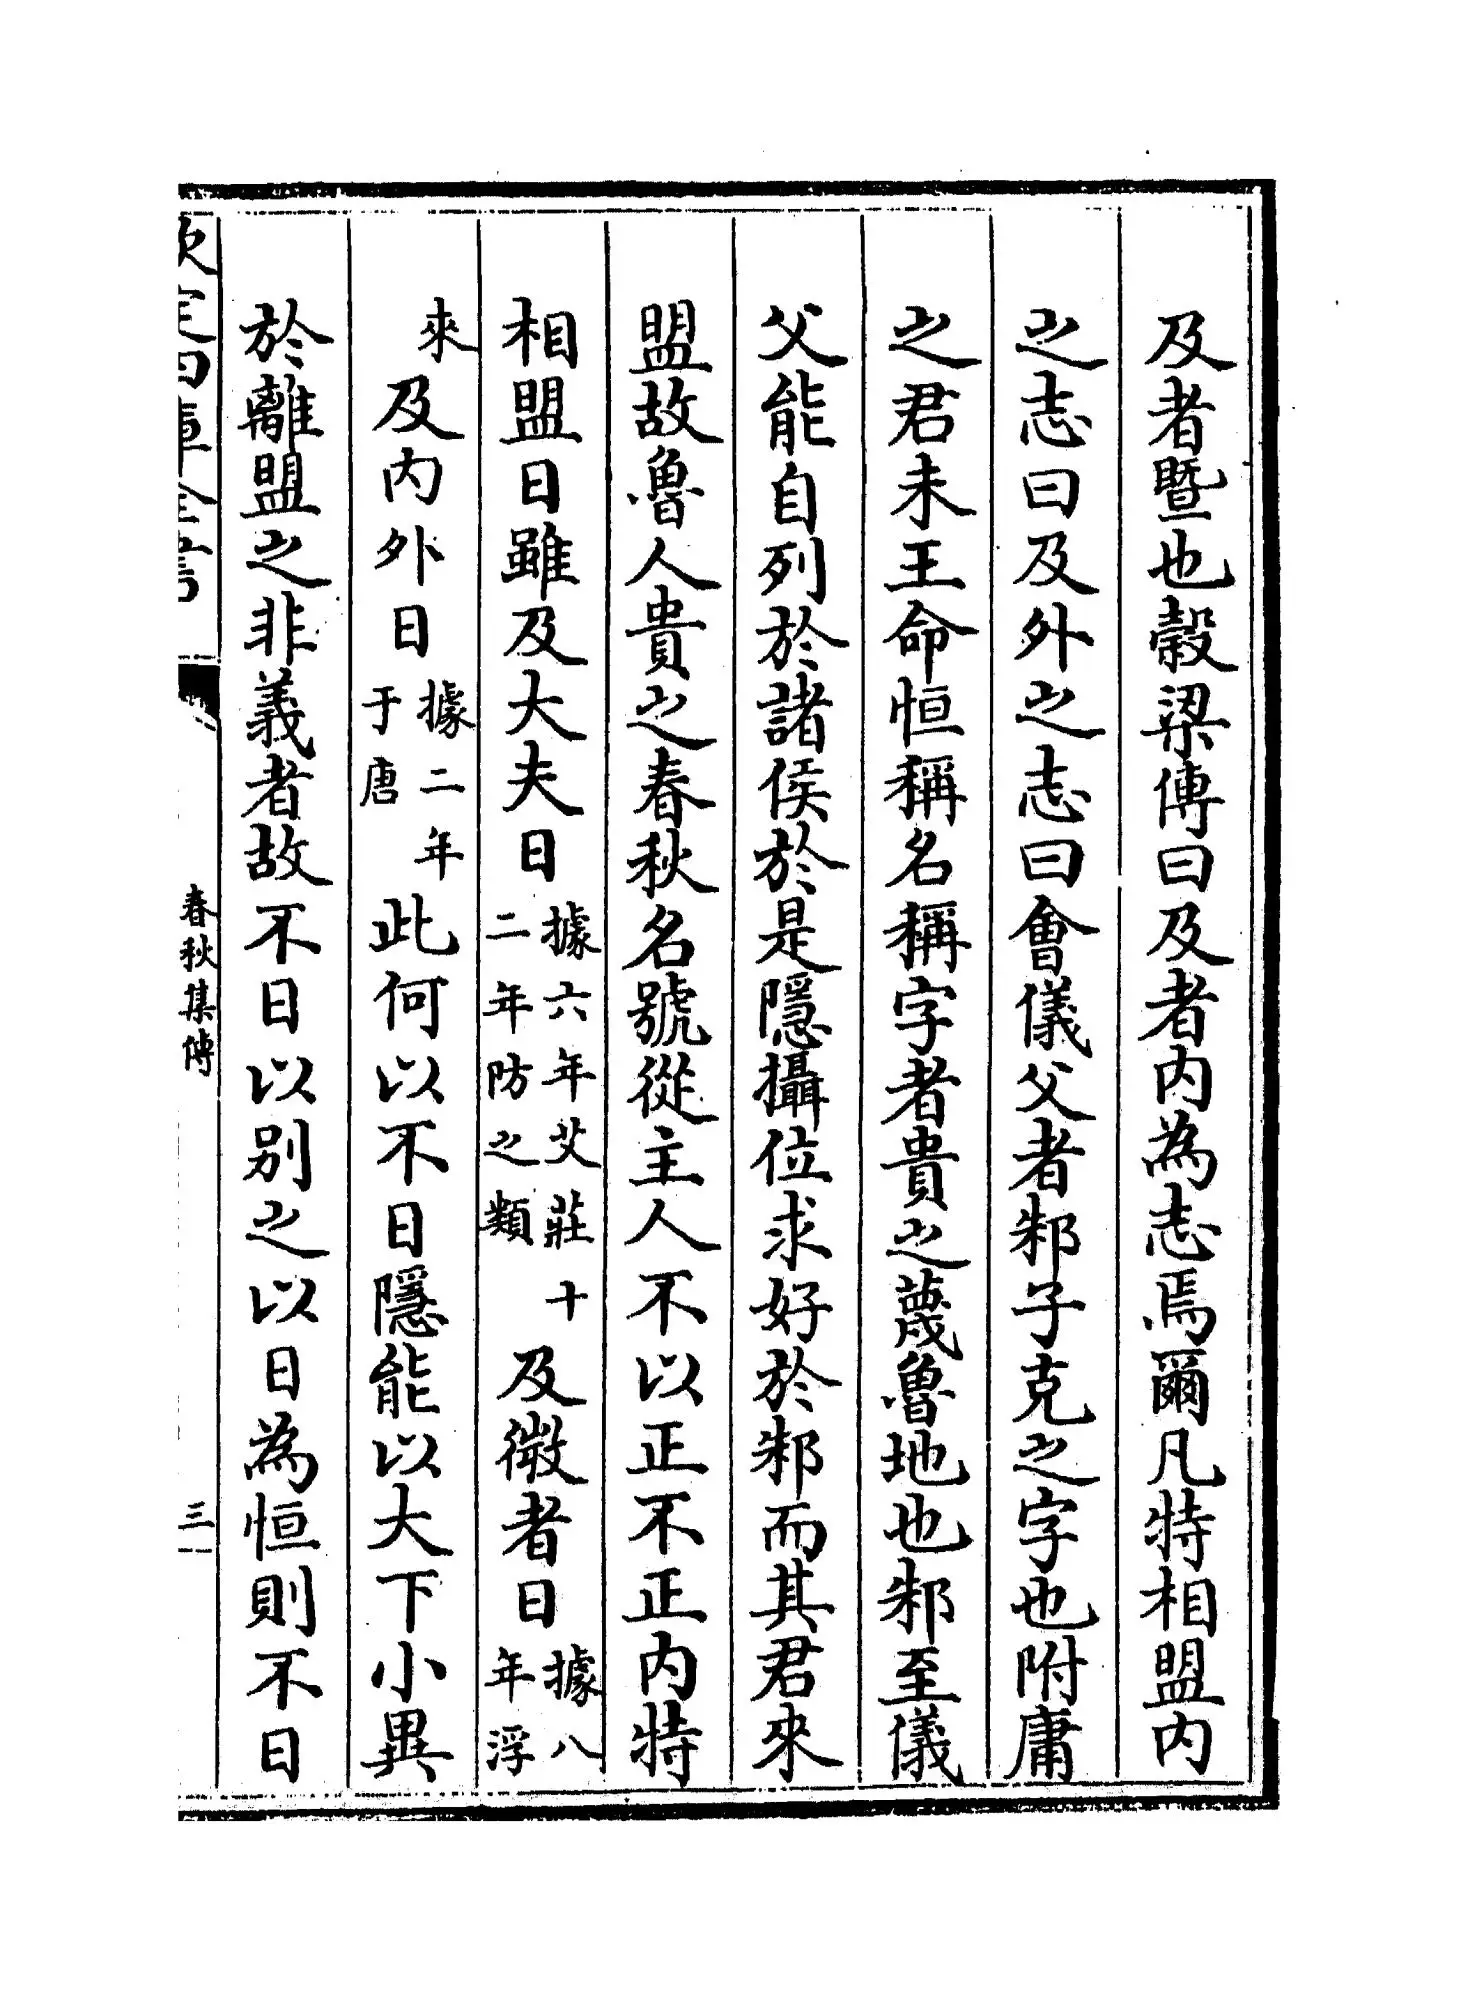 及者暨也榖梁傳曰及者内為志焉爾凡特相盟内
之志曰及外之志曰會儀父者邾子克之字也附庸
之君未王命恒稱名稱字者貴之蔑魯地也邾至儀
父能自列於諸侯於是隱攝位求好於邾而其君來
盟故魯人貴之春秋名號從主人不以正不正内特
相盟日雖及大夫日據六年艾莊十二年防之類及微者日據八年浮
來及内外日據二年于唐此何以不日隱能以大下小異
於離盟之非義者故不日以别之以日為恒則不日
欽定四庫全書 春秋集傳 三